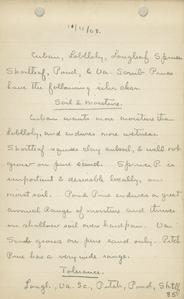 12/11/08.
Cuban, Loblolly, Longleaf Spruce
Shortleaf, Pond, & Va. Scrub Pines
have the following silv. char.
Soil & Moisture.
Cuban wants more moisture than
Loblolly, and endures more wetness.
Shortleaf requires clay subsoil, & will not
grow on pure sand. Spruce P. is
important & desirable locally, on
moist soil. Pond Pine endures a great
annual Range of moisture and thrives
on shallow soil over hardpan. Va.
Scrub grows on pure sand only. Pitch
Pine has a very wide range.
Tolerance.
Longl., Va. Sc., Pitch, Pond, Shtlf
85